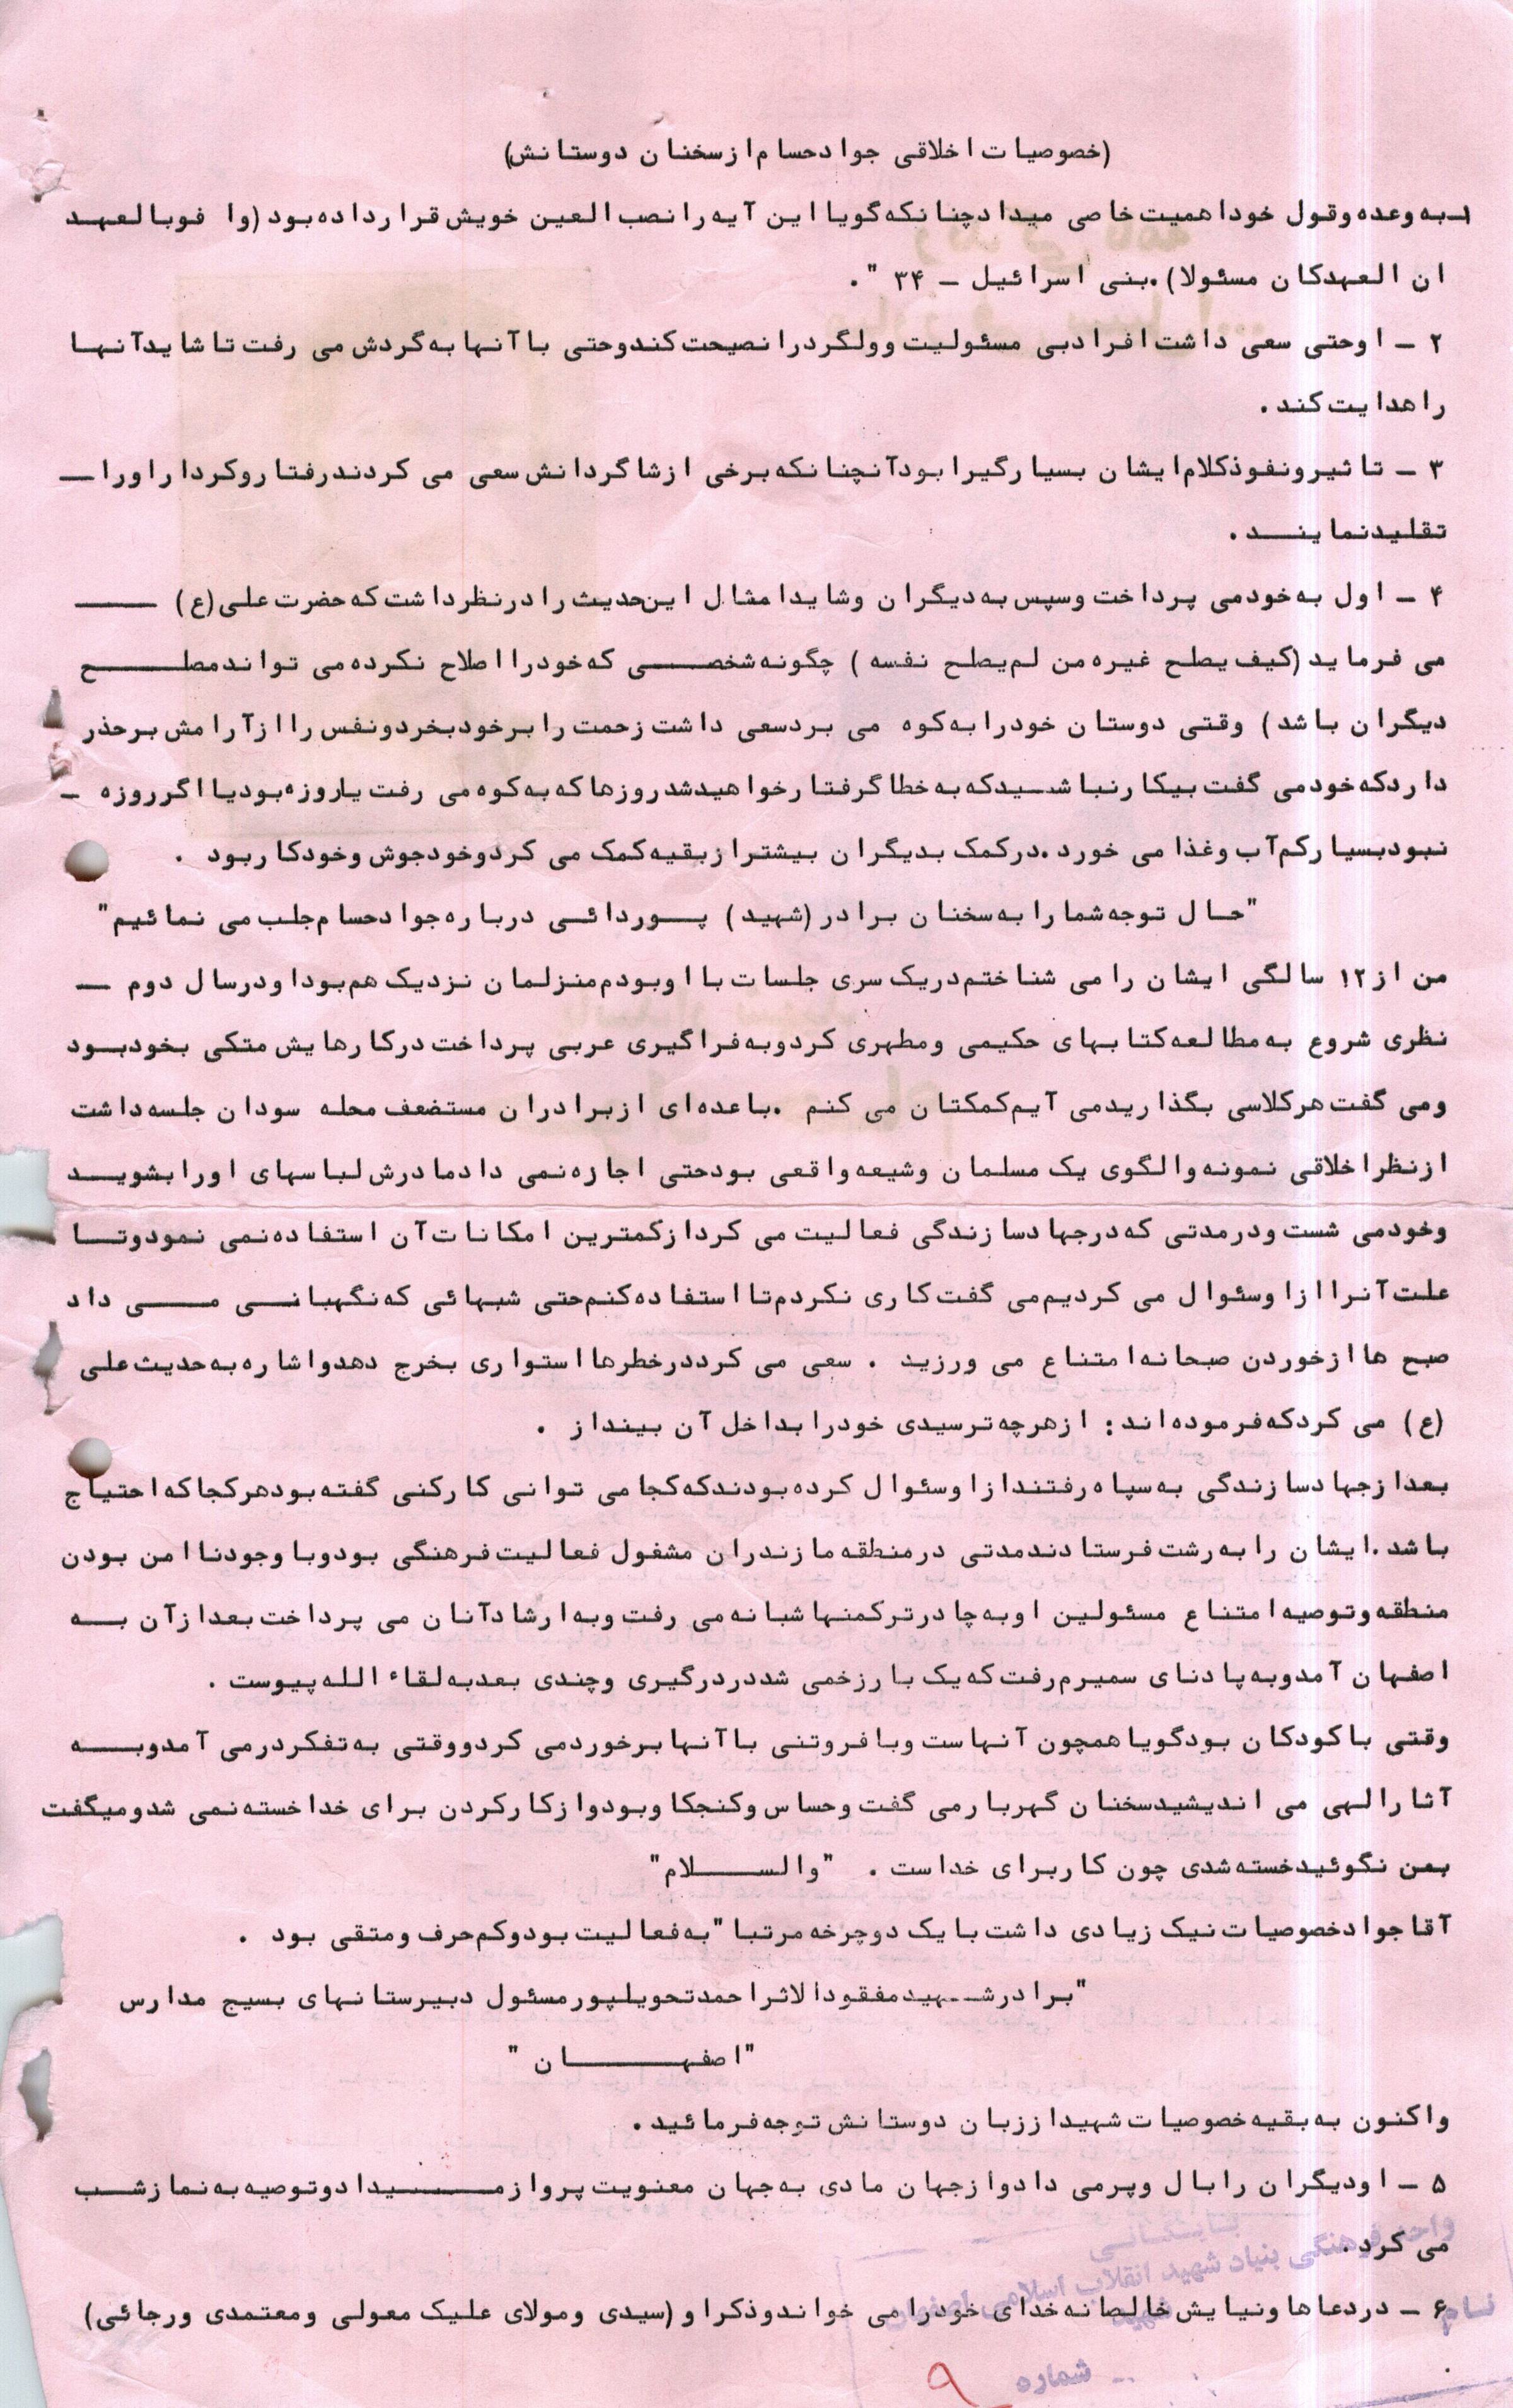 (خصوصیات اخلاقی جواد حسام از سخنان دوستانش)
۱ـ به وعده و قول خود اهمیت خاصی میداد چنانکه گویا این آیه را نصب العین خویش قرار داده بود (وا فوبالعهد
ان العهد کان مسئولا). بنی اسرائیل ـ ۳۴ " .
۲ ـ او حتی سعی داشت افراد بی مسئولیت و ولگرد را نصیحت کند و حتی با آنها به گردش می رفت تا شاید آنها
را هدایت کند .
۳ ـ تاثیر و نفوذ کلام ایشان بسیار گیرا بود آنچنانکه برخی از شاگردانش سعی می کردند رفتار و کردار او را ـ
تقلید نمایند .
۴ ـ اول به خود می پرداخت و سپس به دیگران و شاید امثال این حدیث را در نظر داشت که حضرت علی (ع) ـ
می فرماید (کیف یصلح غیره من لم یصلح نفسه ) چگونه شخصی که خود را اصلاح نکرده می تواند مصلح
دیگران باشد ) وقتی دوستان خود را به کوه می برد سعی داشت زحمت را بر خود بخرد و نفس را از آرامش بر حذر
دارد که خود می گفت بیکار نباشید که به خطا گرفتار خواهید شد روزها که به کوه می رفت یا روزه بود یا اگر روزه ـ
نبود بسیار کم آب و غذا می خورد . در کمک بدیگران بیشتر از بقیه کمک می کرد و خود جوش و خود کار بود .
"حال توجه شما را به سخنان برادر (شهید ) پوردائی درباره جواد حسام جلب می نمائیم"
من از ۱۲ سالگی ایشان را می شناختم در یک سری جلسات با او بودم منزلمان نزدیک هم بود او در سال دوم ـ
نظری شروع به مطالعه کتابهای حکیمی و مطهری کرد و به فراگیری عربی پرداخت در کارهایش متکی بخود بود
و می گفت هر کلاسی بگذارید می آیم کمکتان می کنم . با عده ای از برادران مستضعف محله سودان جلسه داشت
از نظر اخلاقی نمونه و الگوی یک مسلمان و شیعه واقعی بود حتی اجازه نمی داد مادرش لباسهای او را بشوید
و خود می شست و در مدتی که در جهاد سازندگی فعالیت می کرد از کمترین امکانات آن استفاده نمی نمود و تا
علت آنرا از او سئوال می کردیم می گفت کاری نکردم تا استفاده کنم حتی شبهائی که نگهبانی می داد
صبح ها از خوردن صبحانه امتناع می ورزید . سعی می کرد در خطرها استواری بخرج دهد و اشاره به حدیث علی
(ع) می کرد که فرموده اند : از هرچه ترسیدی خود را بداخل آن بینداز .
بعد از جهاد سازندگی به سپاه رفتند از او سئوال کرده بودند که کجا می توانی کار کنی گفته بود هر کجا که احتیاج
باشد . ایشان را به رشت فرستادند مدتی در منطقه مازندران مشغول فعالیت فرهنگی بود و با وجود ناامن بودن
منطقه و توصیه امتناع مسئولین او به چادر ترکمنها شبانه می رفت و به ارشاد آنان می پرداخت بعد از آن به
اصفهان آمد و به پادنای سمیرم رفت که یک بار زخمی شد در درگیری و چندی بعد به لقاء الله پیوست .
وقتی با کودکان بود گویا همچون آنهاست و با فروتنی با آنها برخورد می کرد و وقتی به تفکر در می آمد و به
آثار الهی می اندیشید سخنان گهربار می گفت و حساس و کنجکاو بود و از کار کردن برای خدا خسته نمی شد و میگفت
بمن نگوئید خسته شدی چون کار برای خداست . "والسلام"
آقا جواد خصوصیات نیک زیادی داشت با یک دوچرخه مرتبا" به فعالیت بود و کم حرف و متقی بود .
"برادر شهید مفقودالاثر احمد تحویلپور مسئول دبیرستانهای بسیج مدارس
"اصفهان "
واکنون به بقیه خصوصیات شهید از زبان دوستانش توجه فرمائید .
۵ ـ او دیگران را بال و پر می داد و از جهان مادی به جهان معنویت پرواز میداد و توصیه به نماز شب
می کرد .
۶ ـ در دعاها و نیایش خالصانه خدای خود را می خواند و ذکر او (سیدی و مولای علیک معولی و معتمدی و رجائی)
واحد فرهنگی بنیاد شهید انقلاب اسلامی
نام
شماره ۹